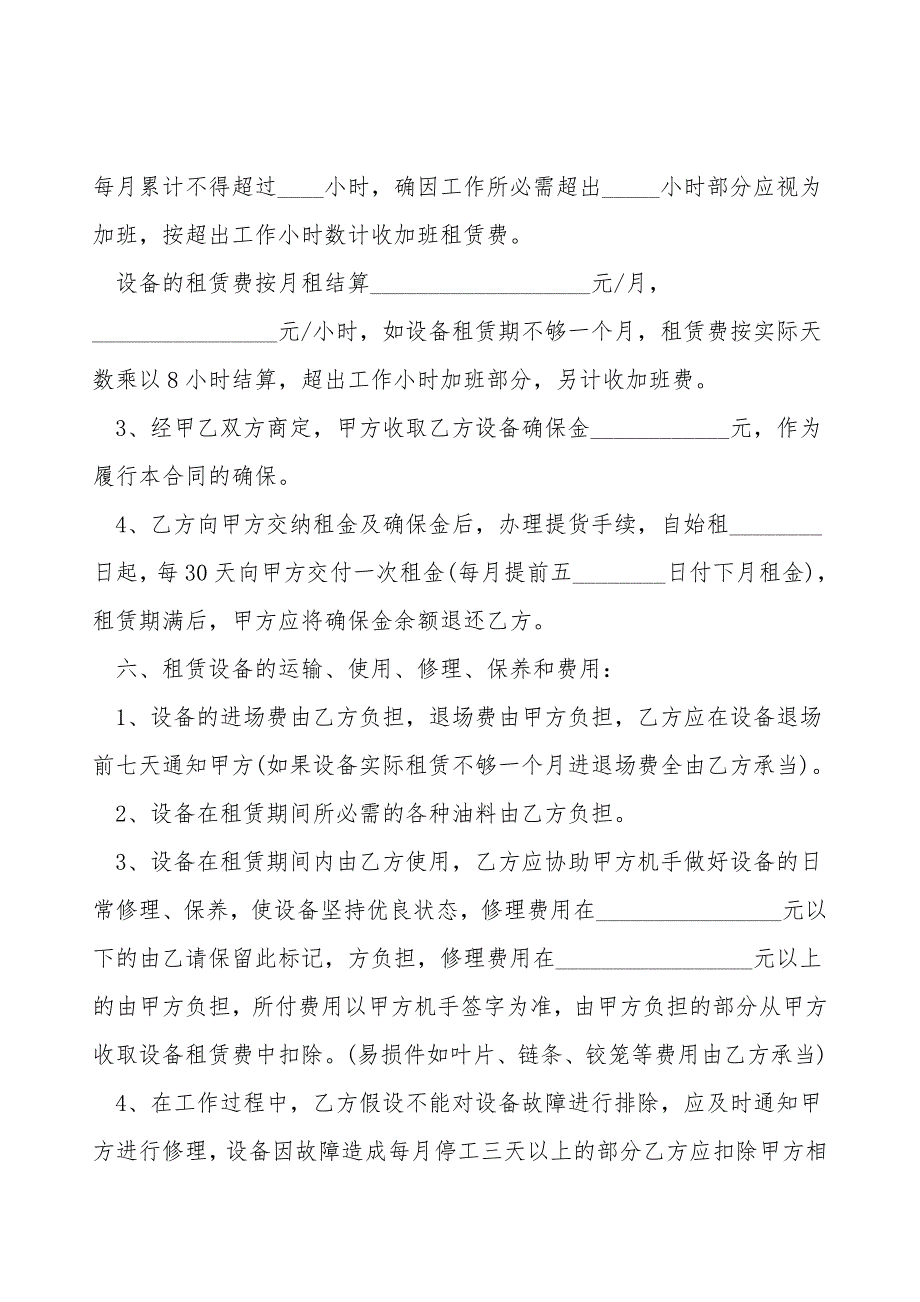 每月累计不得超过____小时，确因工作所必需超出_____小时部分应视为
加班，按超出工作小时数计收加班租赁费。
设备的租赁费按月租结算___________________元/月，
________________元/小时，如设备租赁期不够一个月，租赁费按实际天
数乘以8小时结算，超出工作小时加班部分，另计收加班费。
3、经甲乙双方商定，甲方收取乙方设备确保金____________元，作为
履行本合同的确保。
4、乙方向甲方交纳租金及确保金后，办理提货手续，自始租________
日起，每30天向甲方交付一次租金(每月提前五________日付下月租金)，
租赁期满后，甲方应将确保金余额退还乙方。
六、租赁设备的运输、使用、修理、保养和费用：
1、设备的进场费由乙方负担，退场费由甲方负担，乙方应在设备退场
前七天通知甲方(如果设备实际租赁不够一个月进退场费全由乙方承当)。
2、设备在租赁期间所必需的各种油料由乙方负担。
3、设备在租赁期间内由乙方使用，乙方应协助甲方机手做好设备的日
常修理、保养，使设备坚持优良状态，修理费用在________________元以
下的由乙请保留此标记，方负担，修理费用在_________________元以上
的由甲方负担，所付费用以甲方机手签字为准，由甲方负担的部分从甲方
收取设备租赁费中扣除。(易损件如叶片、链条、铰笼等费用由乙方承当)
4、在工作过程中，乙方假设不能对设备故障进行排除，应及时通知甲
方进行修理，设备因故障造成每月停工三天以上的部分乙方应扣除甲方相